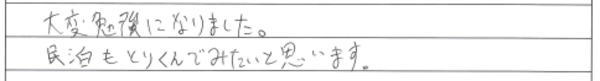 大変勉強になりました。
民泊もとりくんでみたいと思います。